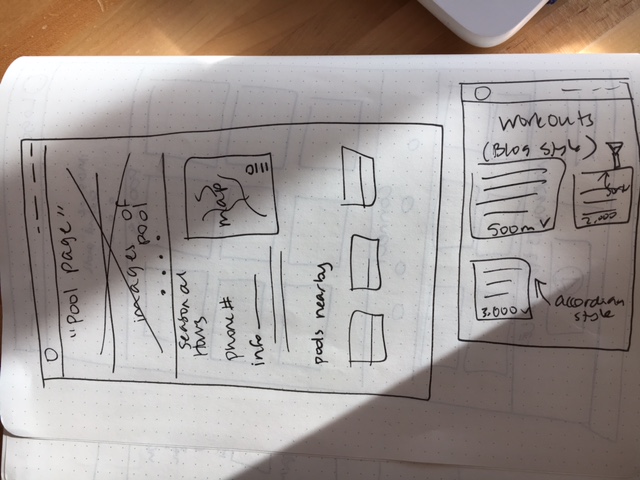 "Pool page"
images of
pool
Seasonal
Hours
phone #
info
map
pools nearby
Workouts
(Blog style)
500m
3,000
2,000
accordian
style